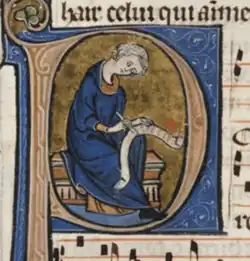 hair celui qui aime
D